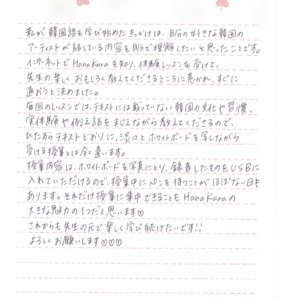 私が韓国語を学び始めたきっかけは、自分の好きな韓国の
アーティストが話している内容を自分で理解したいと思ったことです。
インターネットでHanaKaraを知り、体験レッスンを受けて、
先生の楽しくおもしろく教えてくださるところに惹かれ、すぐに
通おうと決めました。
毎回のレッスンではテキストには載っていない韓国の文化や習慣、
実体験や例え話をまじえながら教えてくださるので、
ひたすらテキストどおりに、淡々とホワイトボードを写しながら
受ける授業とは全く違います。
授業内容は、ホワイトボードを写真にとり、録音したものをUSBに
入れていただけるので、授業中にペンを持つことがほぼない日も
あります。それだけ授業に集中できることもHanaKaraの
大きな魅力の1つだと思います♡
これからも先生の元で楽しく学び続けたいです!!
よろしくお願いします♡♡♡